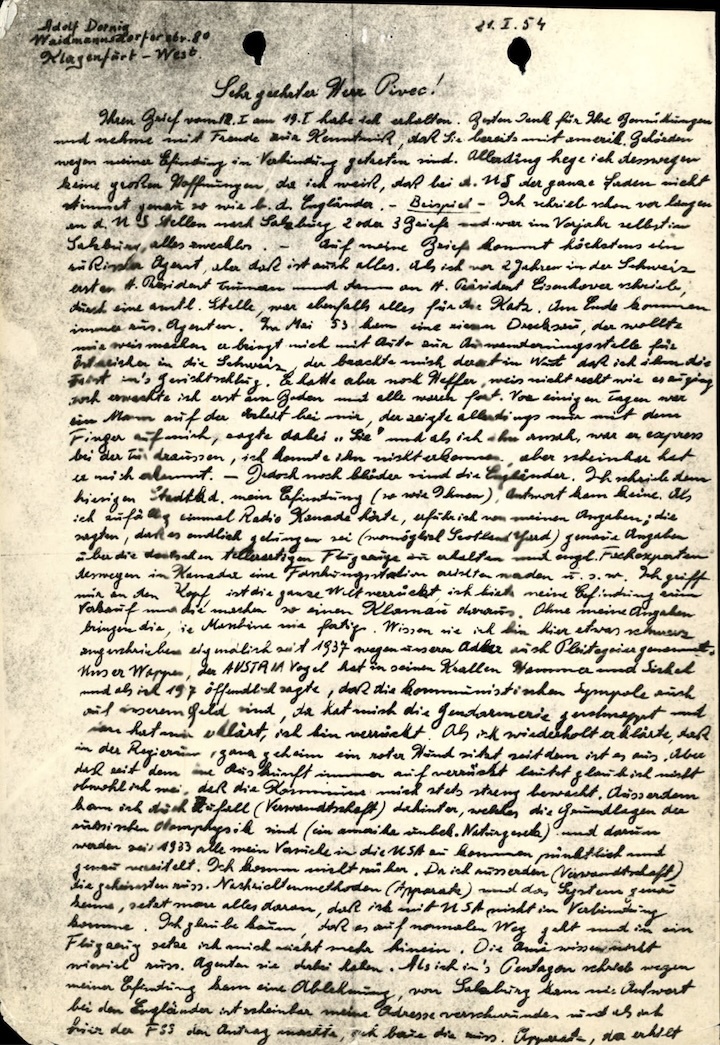 Adolf Dornig
Waidmannsdorferstr. 80
Klagenfurt - West
21.I.54
Sehr geehrter Herr Pivec!
Ihren Brief vom 12.I am 19.I habe ich erhalten. Besten Dank für Ihre Bemühungen
und nehme mit Freude zur Kenntnis, daß Sie bereits mit amerik. Behörden
wegen meiner Erfindung in Verbindung getreten sind. Allerding hege ich desswegen
keine großen Hoffnungen, da ich weiß, daß bei d. US der ganze Faden nicht
stimmt genau so wie b. d. Engländer. - Beispiel - Ich schrieb schon vor langen
an d. US Stellen nach Salzburg 2 oder 3 Briefe und war im Vorjahr selbst in
Salzburg, alles zwecklos. - Auf meine Briefe kommt höchstens ein
Agent, aber daß ist auch alles. Als ich vor 2 Jahren in der Schweiz
erst an H. Präsident Truman und dann an H. Präsident Eisenhover schrieb,
durch eine amtl. Stelle, war ebenfalls alles für die Katz. Am Ende kommen
immer russ. Agenten. Im Mai 53 kam eine so ein Drecksau, der wollte
mir weismachen er bringt mich mit Auto zur Auswanderungsstelle für
Östreicher in die Schweiz, der brachte mich derart in Wut, daß ich ihm die
Faust in's Gesicht schlug. Er hatte aber noch Helfer, weis nicht recht wie es ausging
doch erwachte ich erst am Boden und alle waren fort. Vor einigen Tagen war
ein Mann auf der Arbeit bei mir, der zeigte allerdings nur mit dem
Finger auf mich, sagte dabei „Sie" und als ich ihn ansah, war er express
bei der Tür draussen, ich konnte ihn nicht erkennen, aber scheinbar hat
er mich erkannt. - Jedoch noch blöder sind die Engländer. Ich schrieb dem
hiesigen Stadtkd. mein Erfindung (so wie Ihnen), Antwort kam keine. Als
ich zufällig einmal Radio Kanada hörte, erfuhr ich von meinen Angaben; die
sagten, daß es endlich gelungen sei (womöglich Scotland Yard) genaue Angaben
über die deutschen tellerartigen Flugzeuge zu erhalten und engl. Fachexperten
deswegen in Kanada eine Forschungsstation u. s. w. Ich griff
mir an den Kopf, ist die ganze Welt verrückt, ich biete meine Erfindung zum
Verkauf und die machen so einen Klamau daraus. Ohne meine Angaben
bringen die, die Maschine nie fertig. Wissen sie ich bin hier etwas schwarz
angeschrieben eigendlich seit 1937 wegen unseren Adler auch Pleitegeier genannt.
Unser Wappen, der AUSTRIA Vogel hat in seinen Krallen Hammer und Sichel
und als ich 1937 öffendlich sagte, daß die kommunistischen Sympole auch
auf unserem Geld sind, da hat mich die Gendarmerie geschnappt und
man hat mir erklärt, ich bin verrückt. Als ich wiederholt erklärte, daß
in der Regierung ganz geheim ein roter Hund sitzt seit dem ist es aus. Aber
daß seit dem die Auskunft immer auf verrückt lautet glaub ich nicht
obwohl ich weis, daß die Kommune mich stets streng bewacht. Ausserdem
kam ich durch Zufall (Verwandtschaft) dahinter, welches die Grundlagen der
russischen Atomphysik sind (ein amerika unbek. Naturgesetz) und darum
werden seit 1933 alle mein Versuche in die USA zu kommen pünktlich und
genau vereitelt. Ich komm nicht näher. Da ich ausserdem (Verwandtschaft)
die geheimsten russ. Nachrichtenmethoden (Apparate) und das System genau
kenne, setzt man alles daran, daß ich mit USA nicht in Verbindung
komme. Ich glaube kaum, daß es auf normalen Weg geht und in ein
Flugzeug setze ich mich nicht mehr hinein. Die Ame wissen nicht
wieviel russ. Agenten sie dabei haben. Als ich in's Pentagon schrieb wegen
meiner Erfindung kam eine Ablehnung, von Salzburg kam nie Antwort
bei den Engländer ist scheinbar meine Adresse verschwunden und als ich
hier der FSS den Antrag machte, ich baue die russ. Apparate, da erhielt